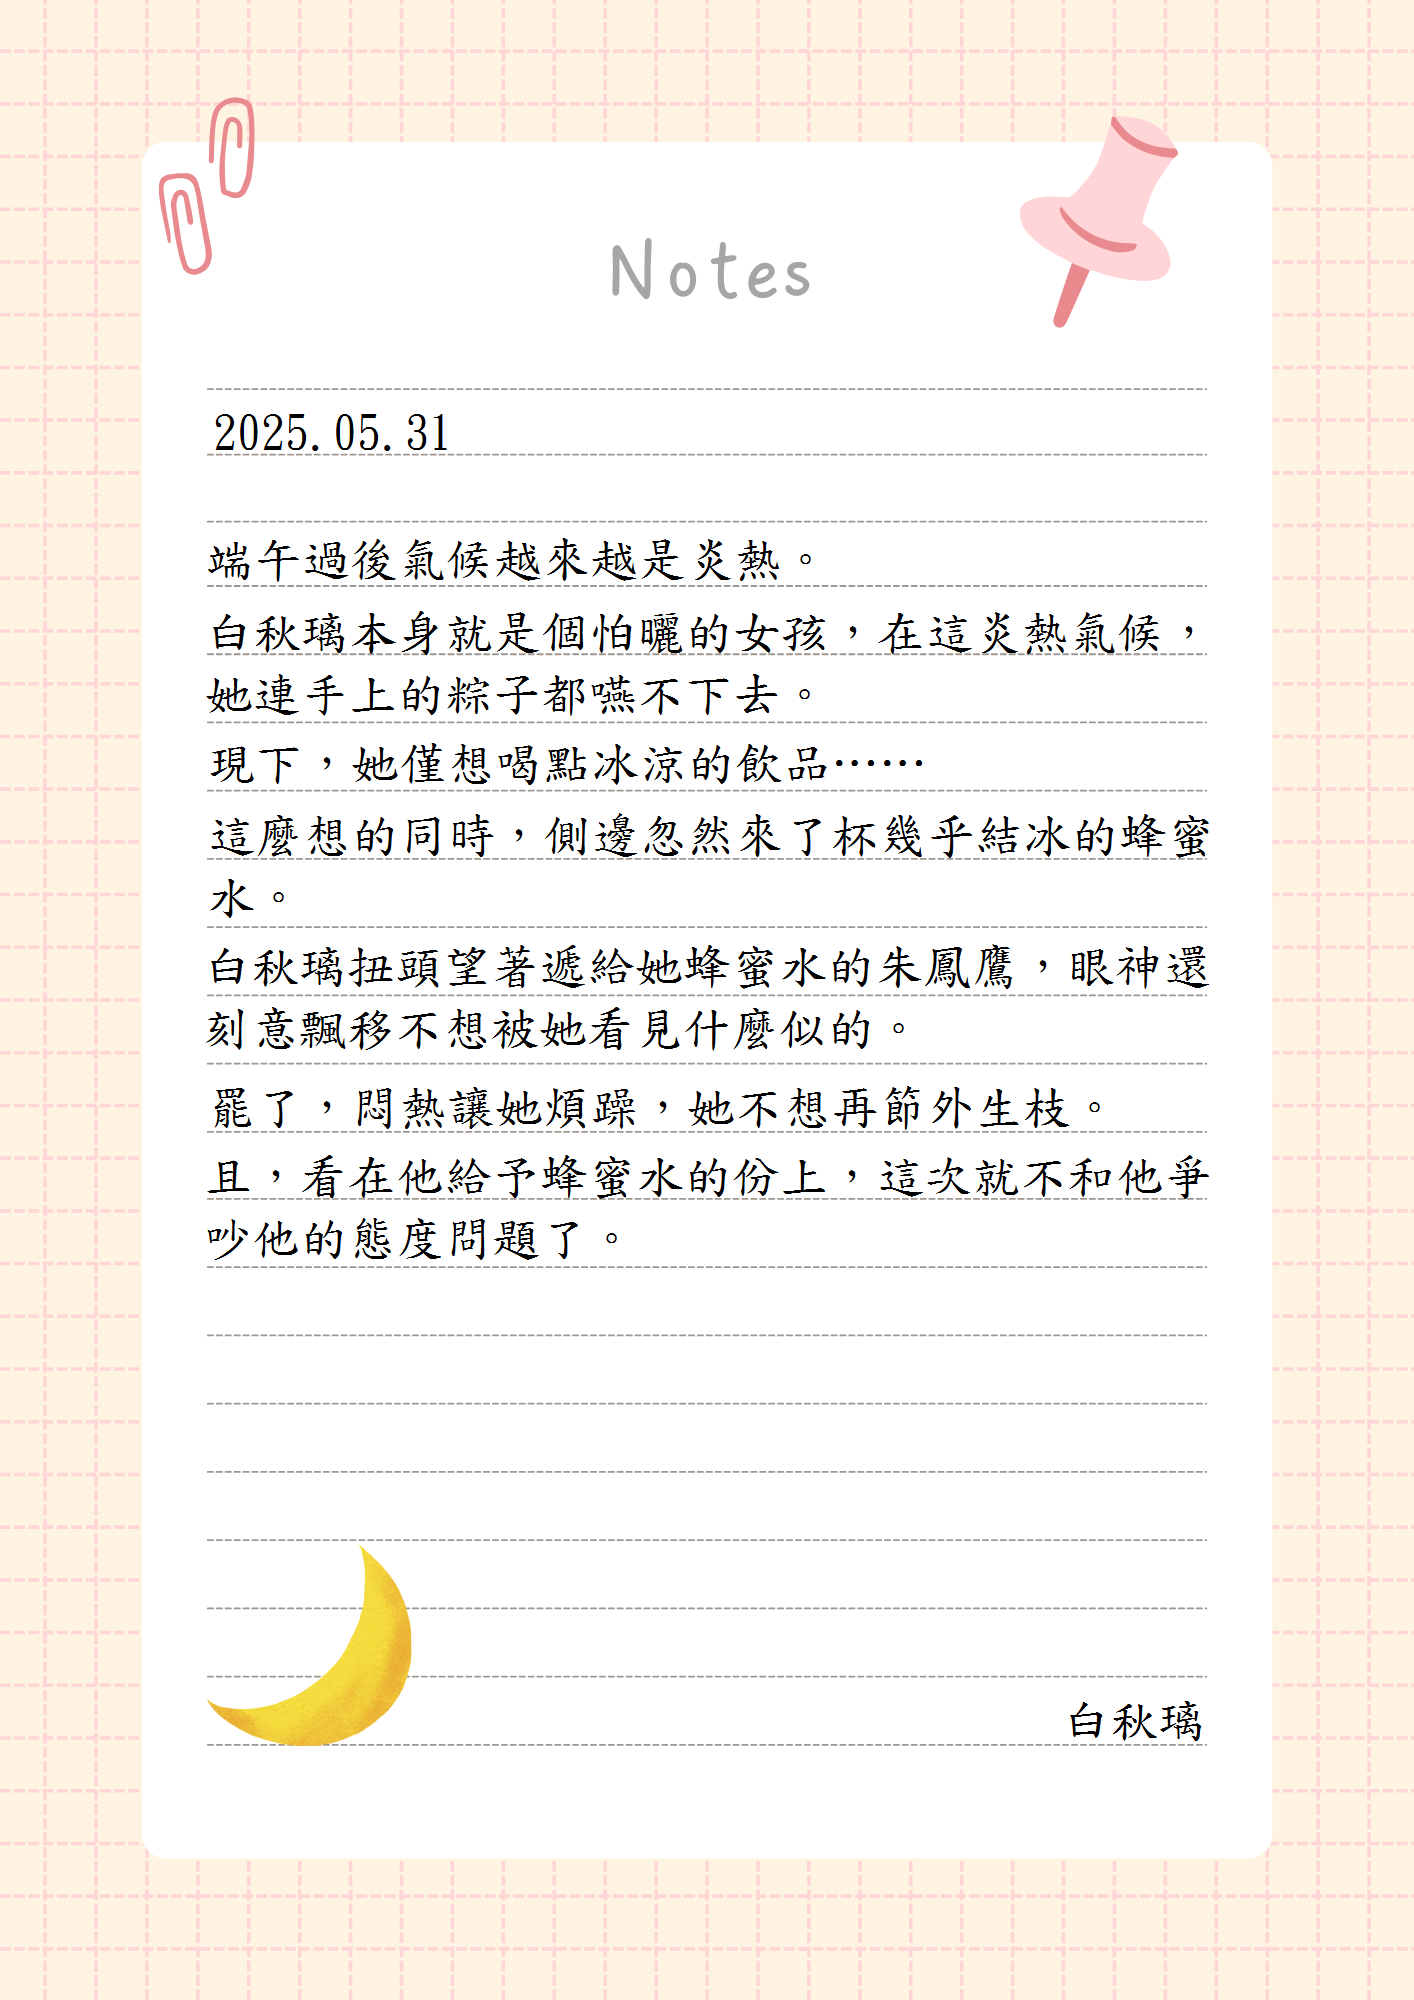 Notes
2025.05.31
端午過後氣候越來越是炎熱。
白秋璃本身就是個怕曬的女孩，在這炎熱氣候，
她連手上的粽子都嚥不下去。
現下，她僅想喝點冰涼的飲品……
這麼想的同時，側邊忽然來了杯幾乎結冰的蜂蜜
水。
白秋璃扭頭望著遞給她蜂蜜水的朱鳳鷹，眼神還
刻意飄移不想被她看見什麼似的。
罷了，悶熱讓她煩躁，她不想再節外生枝。
且，看在他給予蜂蜜水的份上，這次就不和他爭
吵他的態度問題了。
白秋璃